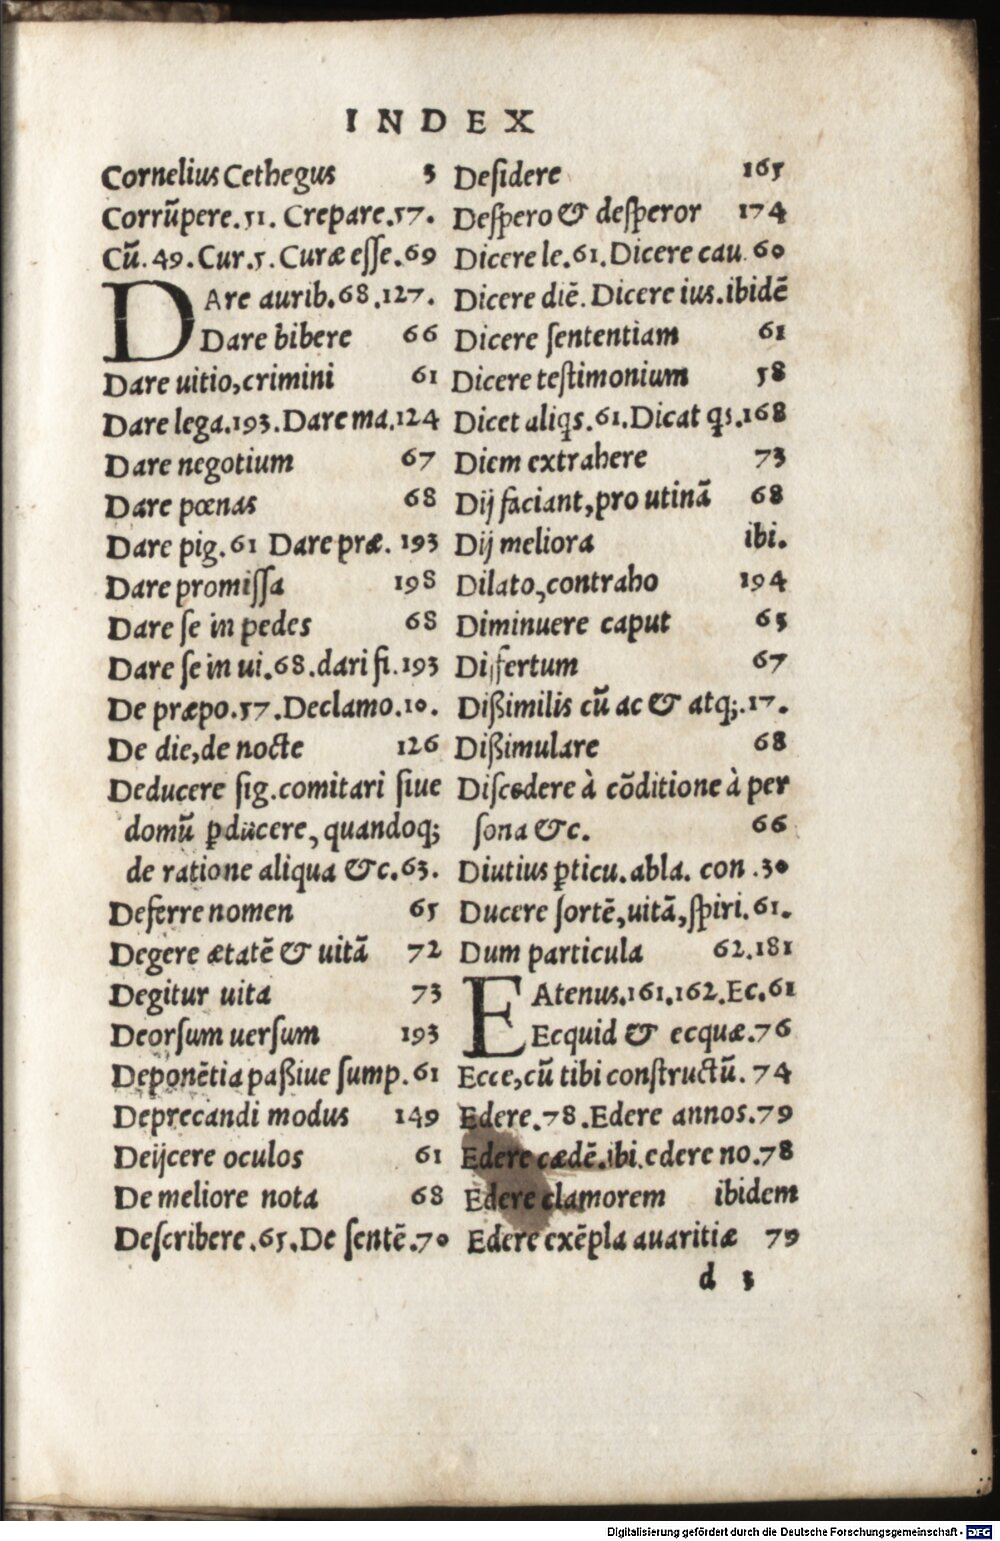 INDEX
Cornelius Cethegus 3
Corrũpere.51. Crepare.57.
Cũ.49.Cur.5.Curæ eſſe.69
DAre aurib.68.127.
Dare bibere 66
Dare uitio,crimini 61
Dare lega.193.Dare ma.124
Dare negotium 67
Dare pœnas 68
Dare pig.61 Dare præ.193
Dare promiſſa 198
Dare ſe in pedes 68
Dare ſe in ui.68.dari fi.193
De præpo.57.Declamo.10.
De die,de nocte 126
Deducere ſig.comitari ſiue
domũ ꝑducere, quandoq;
de ratione aliqua &c.63.
Deferre nomen 65
Degere ætatẽ & uitã 72
Degitur uita 73
Deorſum uerſum 193
Deponẽtia paßiue ſump.61
Deprecandi modus 149
Deijcere oculos 61
De meliore nota 68
Deſcribere.65.De ſentẽ.70
Deſidere 165
Deſpero & deſperor 174
Dicere le.61.Dicere cau.60
Dicere diẽ. Dicere ius.ibidẽ
Dicere ſententiam 61
Dicere teſtimonium 58
Dicet aliqs.61.Dicat qs.168
Diem extrahere 73
Dij faciant,pro utinã 68
Dij meliora ibi.
Dilato,contraho 194
Diminuere caput 65
Diſſertum 67
Dißimilis cũ ac & atq;.17.
Dißimulare 68
Diſcedere à cõditione à per
ſona &c. 66
Diutius ꝑticu.abla. con .30
Ducere ſortẽ,uitã,ſpiri.61.
Dum particula 62.181
EAtenus.161.162.Ec.61
Ecquid & ecquæ.76
Ecce,cũ tibi conſtructũ. 74
Edere.78.Edere annos.79
Edere cædẽ.ibi.edere no.78
Edere clamorem ibidem
Edere exẽpla auaritiæ 79
d 3
Digitalisierung gefördert durch die Deutsche Forschungsgemeinschaft - DFG